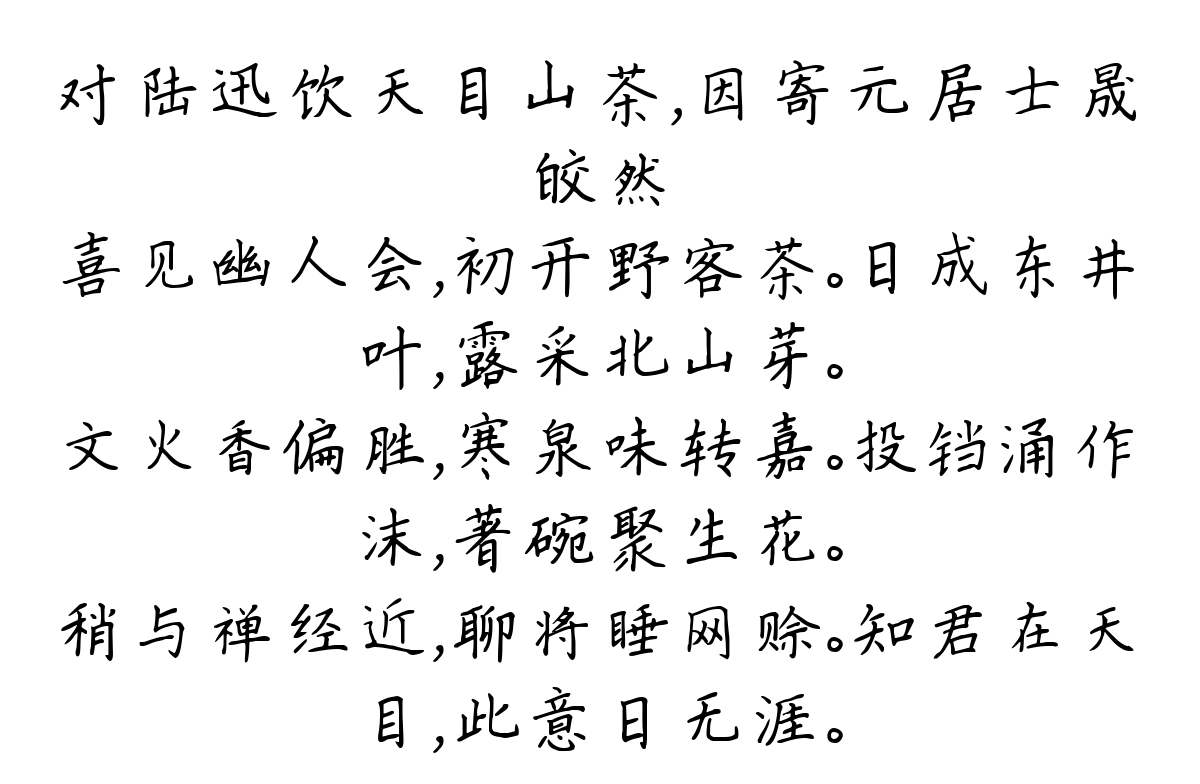 对陆迅饮天目山茶,因寄元居士晟
皎然
喜见幽人会,初开野客茶。日成东井
叶,露采北山芽。
文火香偏胜,寒泉味转嘉。投铛涌作
沫,著碗聚生花。
稍与禅经近,聊将睡网赊。知君在天
目,此意日无涯。